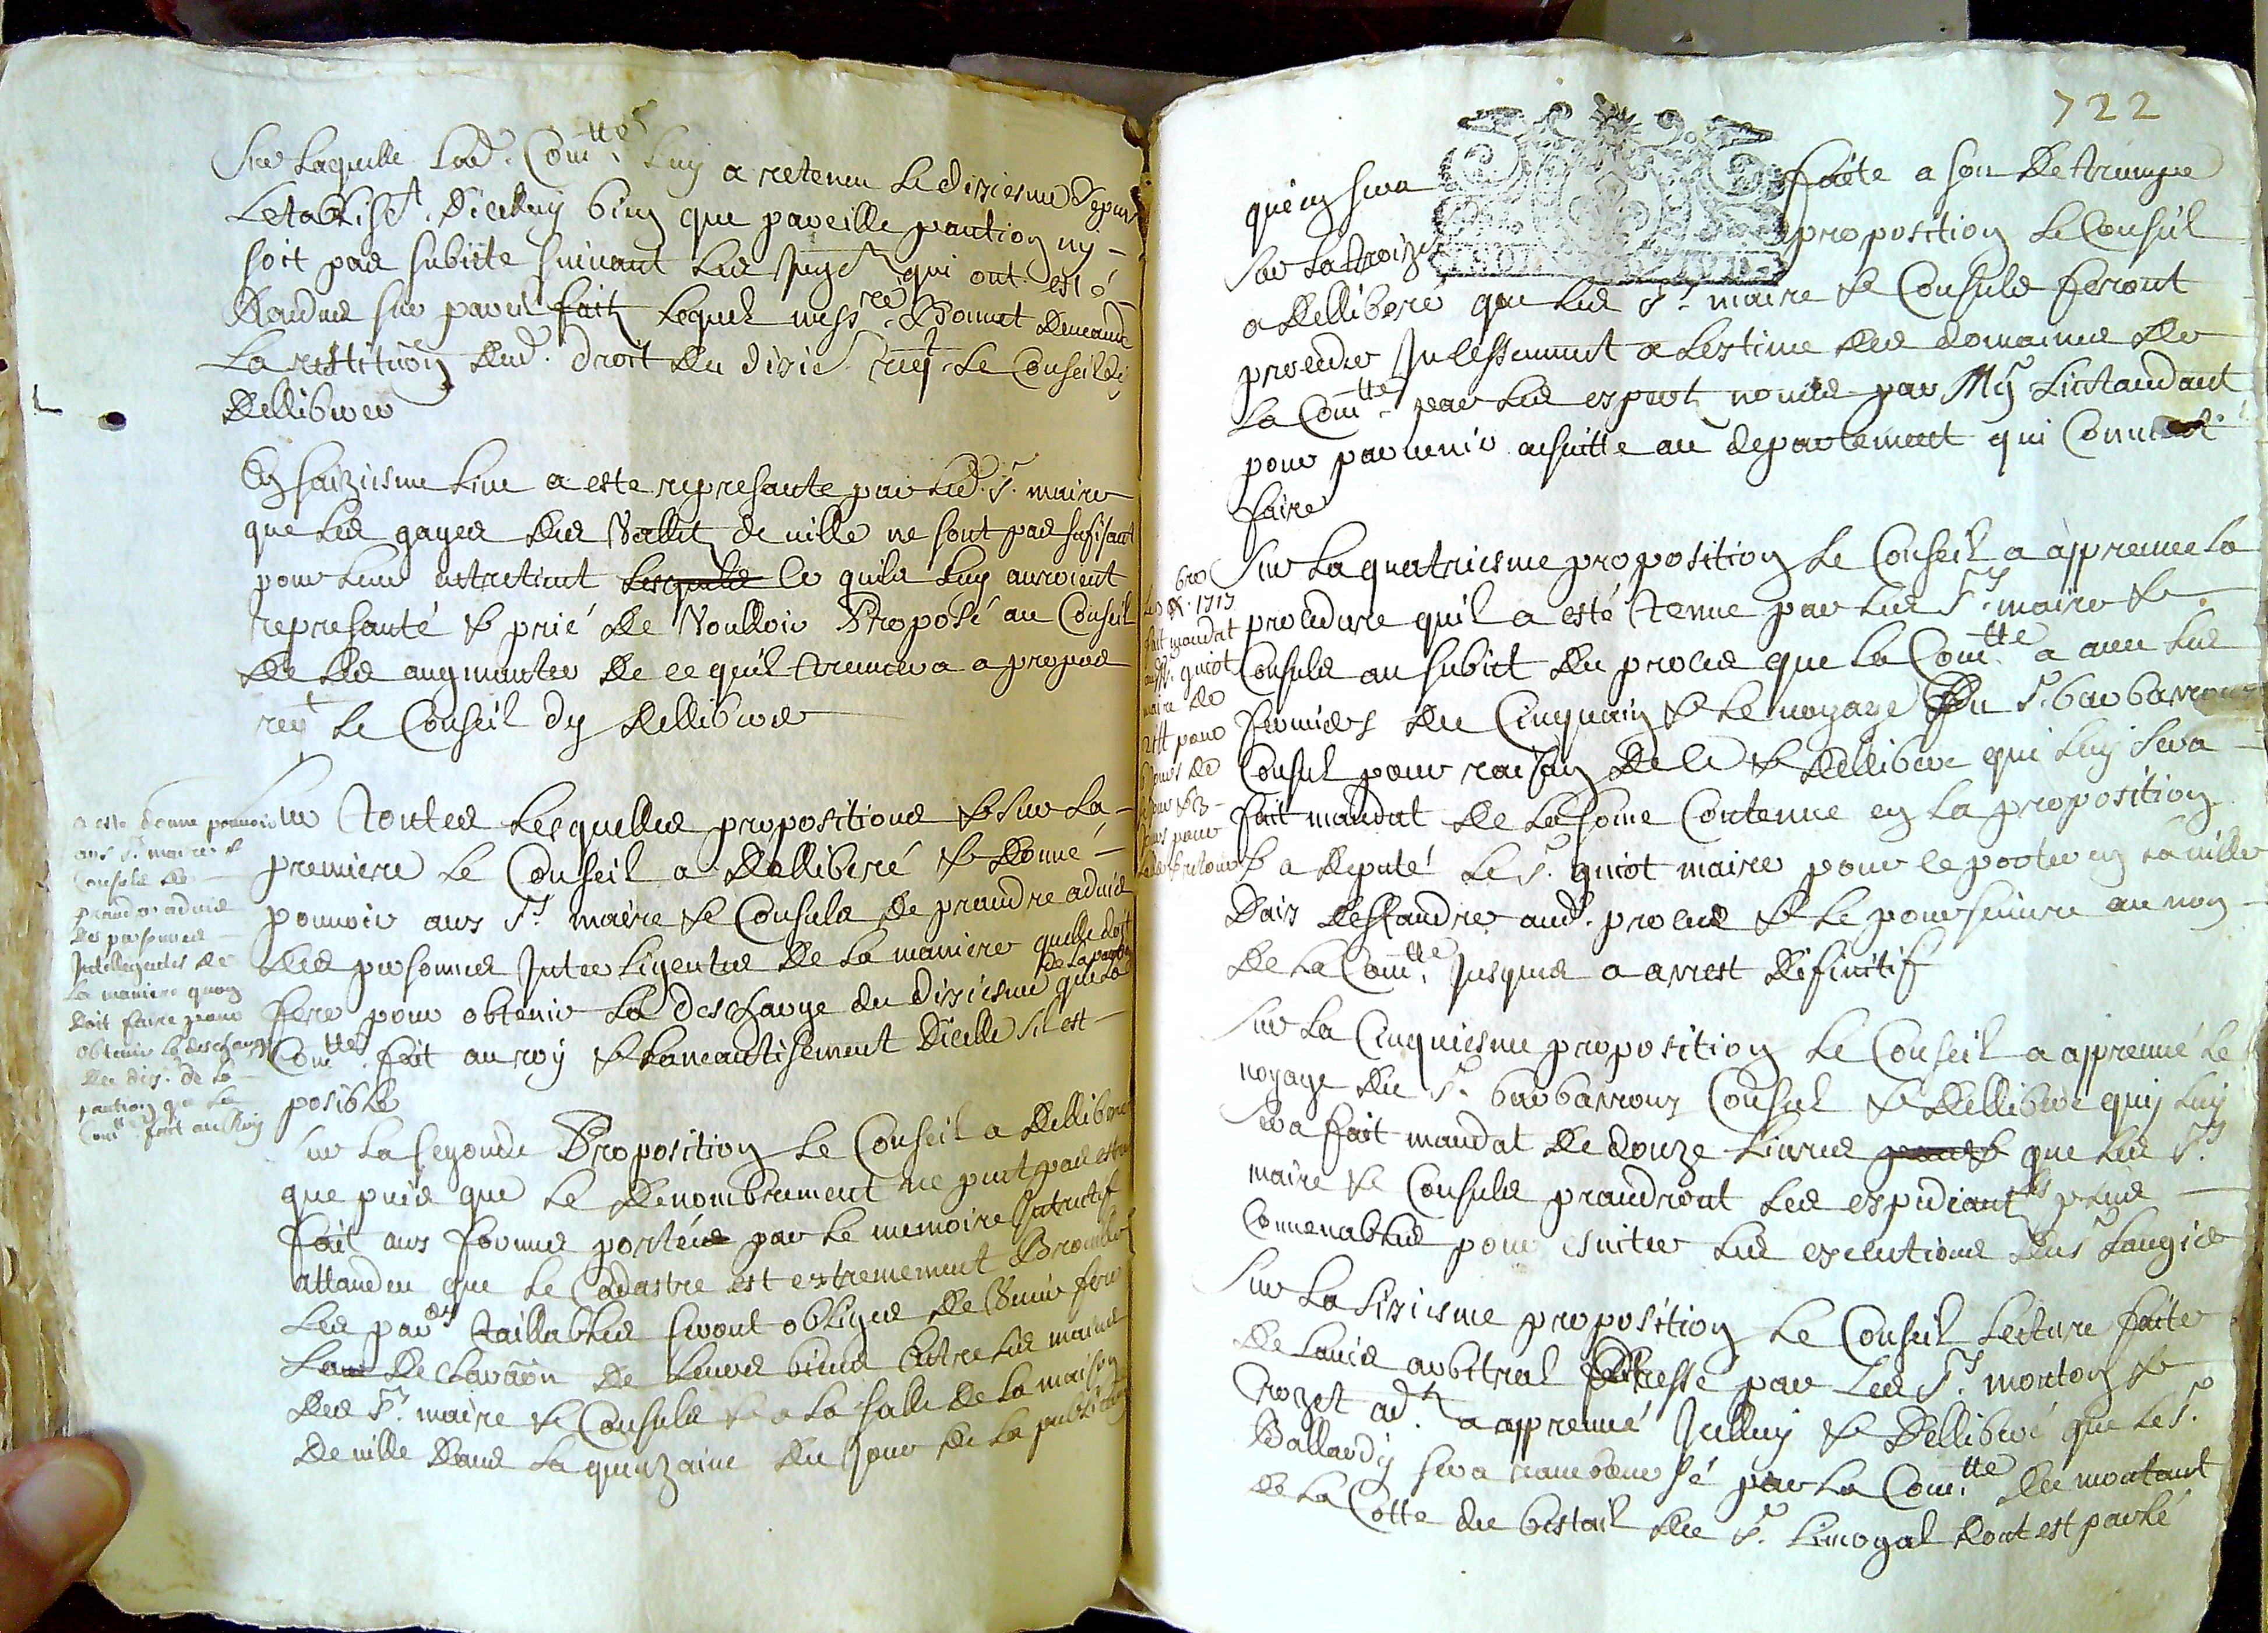 Sur Laquelle Lad. Com.tté Luy a retenu Le dixiesme depuis
Letablisst. Dicelluy bien que pareille pantion ny
soit pas subiette suivant Les Jugets qui ont esté
Randues sur pareil fait Lequel messre. Bonnet demande
La restituõn dud. droit du dixie. reqt. Le Conseil dy
delliberer
En saiziesme Lieu a este representé par Led. Sr. maire
que Les gages des Vallets de ville ne sont pas sufisant
pour Leur entretient Lesquels Ce quils Luy auroient
represanté & prié de Voulloir Proposé au Conseil
de Les augmanter de ce quil treuvera a propos
reqt Le Conseil dy dellibere
Sur Toutes Lesquelles propositions & sur La
premiere Le Conseil a delliberé & donné
pouvoir aux Srs. maire & Consuls de prandre advis
des personnes Intelligentes de La maniere quelle doit
fere pour obtenir La descharge du dixiesme de La pantion que La
Comtté. fait au roy & Laneantisement dicelle sil est
posible
a este donne pouvoir
aux Srs. maire &
Consuls de
prandre advis
des personnes
Intelligentes de
La maniere quon
doit faire pour
obtenir La descharge
du dix. de La
pantion que La
Comtté. fait au Roy
Sur La segonde Proposition Le Conseil a dellibere
que puis que Le denombrement ne peut pas estre
fait aux formes portées par Le memoire Intructif
attandeu que Le Cadastre est extremement Brouillé
Les parers Taillables seront obliges de Venir fere
Leur declaraõn de Leurs biens Entre Les mains
des Srs. maire & Consuls & a La salle de La maison
de ville dans La quinzaine du Jour de La publication
722
quien sera faite a son de trompe
Sur La troizie proposition Le Conseil
a delliberé que Les Srs. maire & Consuls feront
proceder Incessemment a Lestime des domaines de
La Comtté. par Les expert només par Mgr Lintandant
pour parvenir ensuitte au departement qui Convient
faire
Sur La quatriesme proposition Le Conseil a appreuvé La
procedure quil a esté tenue par Les Srs. maire &
Consuls au subiet du proces que La Comtté. a avec Les
fermiers du Cinquain & Le voyage du Sr. barbarroux
Consul pour raison de Ce & dellibere qui Luy sera
fait mandat de La some Contenue en La proposition
& a deputé Le Sr. guiot maire pour le porter en La ville
Daix deffandre aud. proces & Le poursuivre au nom
de La Comtté. Jusques a arrest definitif
1713
fait mandat
guiot
maire de
pour
Sur La Cinquiesme proposition Le Conseil a appreuvé Le
voyage du Sr. barbarroux Consul & dellibere quij Luy
sera fait mandat de douze Livres que Les Srs.
maire & Consuls prandront Les expediants Les plus
Convenables pour eviter Les exeCutions des Laugier
Sur La sixiesme proposition Le Conseil Lecture faite
de Lavis arbitral dressé par Les Srs. monton &
Crozet adts a appreuvé Icelluy & delliberé que Le Sr.
Ballardy sera rambourssé par La Comtté. du montant
de La Cotte du bestail du Sr. Limogal dont est parlé